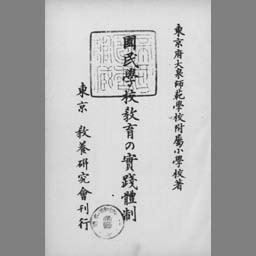 東京府大泉師範學校附屬小學校著
國民學校教育の實踐體制
東京 教養研究會刊行